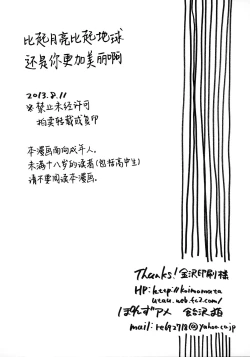 比起月亮比起地球
还是你更加美丽啊
2013.8.11
※禁止未经许可
拍卖转载或复印
本漫画面向成年人。
未满十八岁的读者(包括高中生)
请不要阅读本漫画。
Thanks! 金沢印刷様
HP: http://koimomata
utau.web.fc2.com/
ぽんずアメ
mail:
@yahoo.co.jp